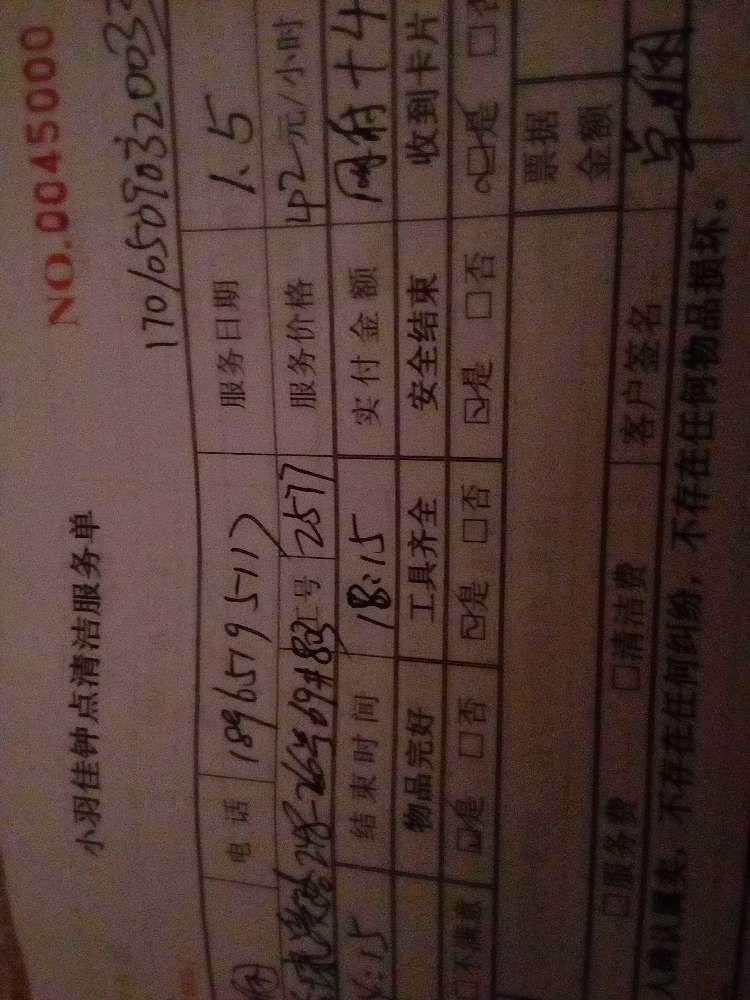 小羽佳钟点清洁服务单 NO.0045000
1701050903200
电话 18965795117 服务日期 1.5
248-26号 工号 2577 服务价格 42元/小时
:15 结束时间 18:15 实付金额
物品完好 工具齐全 安全结束 收到卡片
□不满意 ☑是 □否 ☑是 □否 ☑是 □否 ☑是 □否
票据金额
□服务费 □清洁费 客户签名
人确认属实，不存在任何纠纷，不存在任何物品损坏。